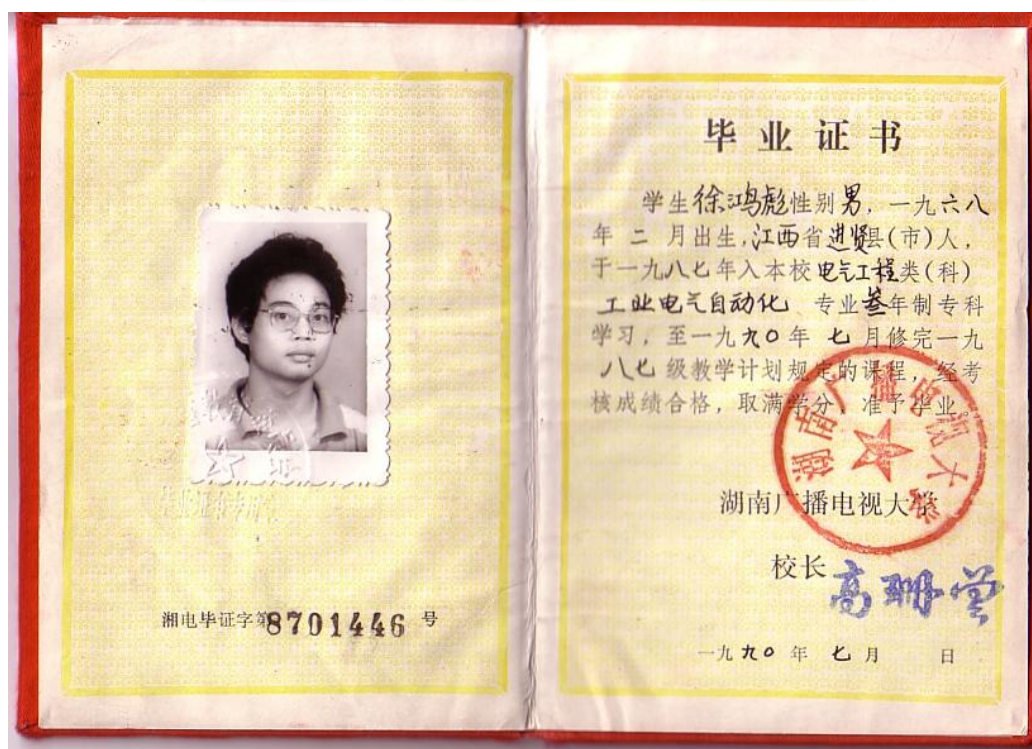 湘电毕证字第8701446号
毕业证书
学生徐鸿彪性别男，一九六八
年二月出生，江西省进贤县(市)人，
于一九八七年入本校电气工程类(科)
工业电气自动化 专业叁年制专科
学习，至一九九0年 七月修完一九
八七级教学计划规定的课程，经考
核成绩合格，取满学分，准予毕业。
湖南广播电视大学
湖南广播电视大学
校长
一九九0年 七月 日